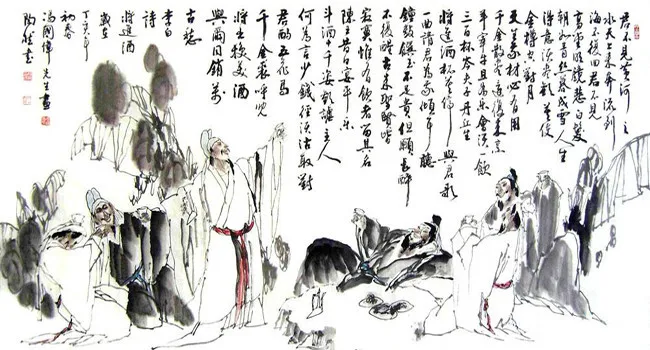 君不見黃河之
水天上来奔流到
海不復回君不見
高堂明鏡悲白髮
朝如青丝暮成雪人生
得意须尽歡莫使
金樽空對月
天生我材必有用
千金散尽還復来烹
羊宰牛且為樂會须一飲
三百杯岑夫子丹丘生
将進酒杯莫停與君歌
一曲請君為我傾耳聽
鐘鼓饌玉不足貴但願長醉
不復醒古来聖賢皆
寂寞惟有飲者留其名
陳王昔日宴平樂
斗酒十千恣歡謔主人
何為言少錢徑须沽取對
君酌五花馬
千金裘呼兒
将出换美酒
與爾同銷萬
古愁
李白
詩
将進酒
歲在
丁亥年
初春
馮國偉先生畫